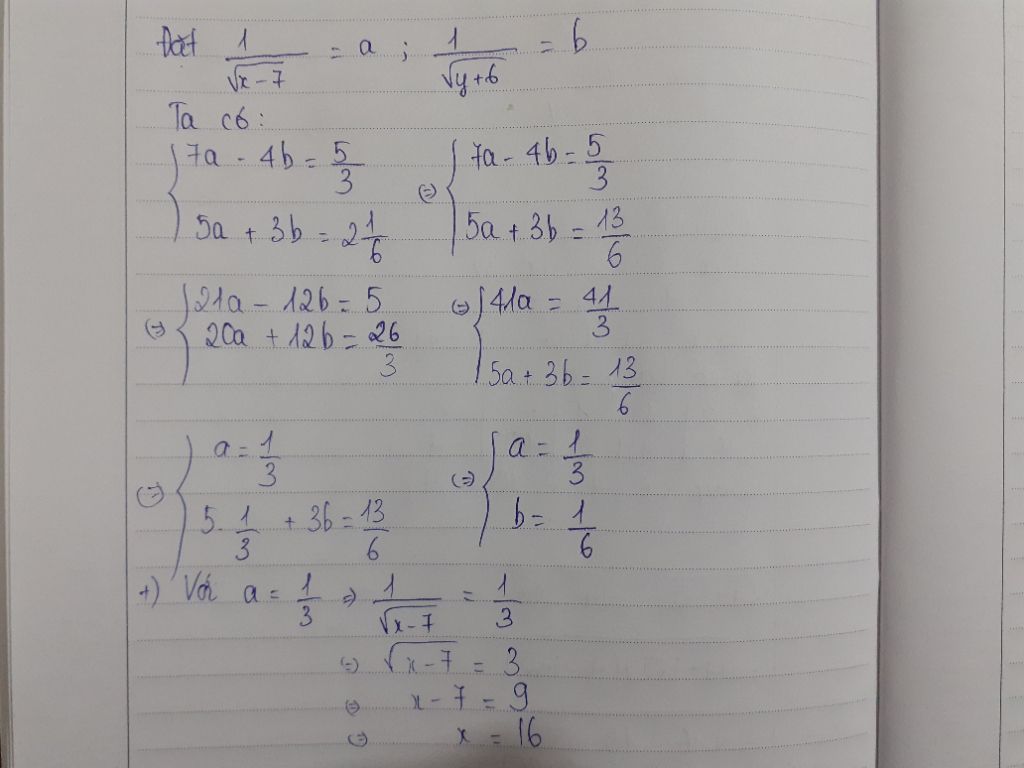 Đặt 1/√(x-7) = a ; 1/√(y+6) = b
Ta có:
{ 7a - 4b = 5/3 ; 5a + 3b = 2 1/6 (=) { 7a - 4b = 5/3 ; 5a + 3b = 13/6
(=) { 21a - 12b = 5 ; 20a + 12b = 26/3 (=) { 41a = 41/3 ; 5a + 3b = 13/6
(=) { a = 1/3 ; 5. 1/3 + 3b = 13/6 (=) { a = 1/3 ; b = 1/6
+) Với a = 1/3 => 1/√(x-7) = 1/3
(=) √(x-7) = 3
(=) x - 7 = 9
(=) x = 16